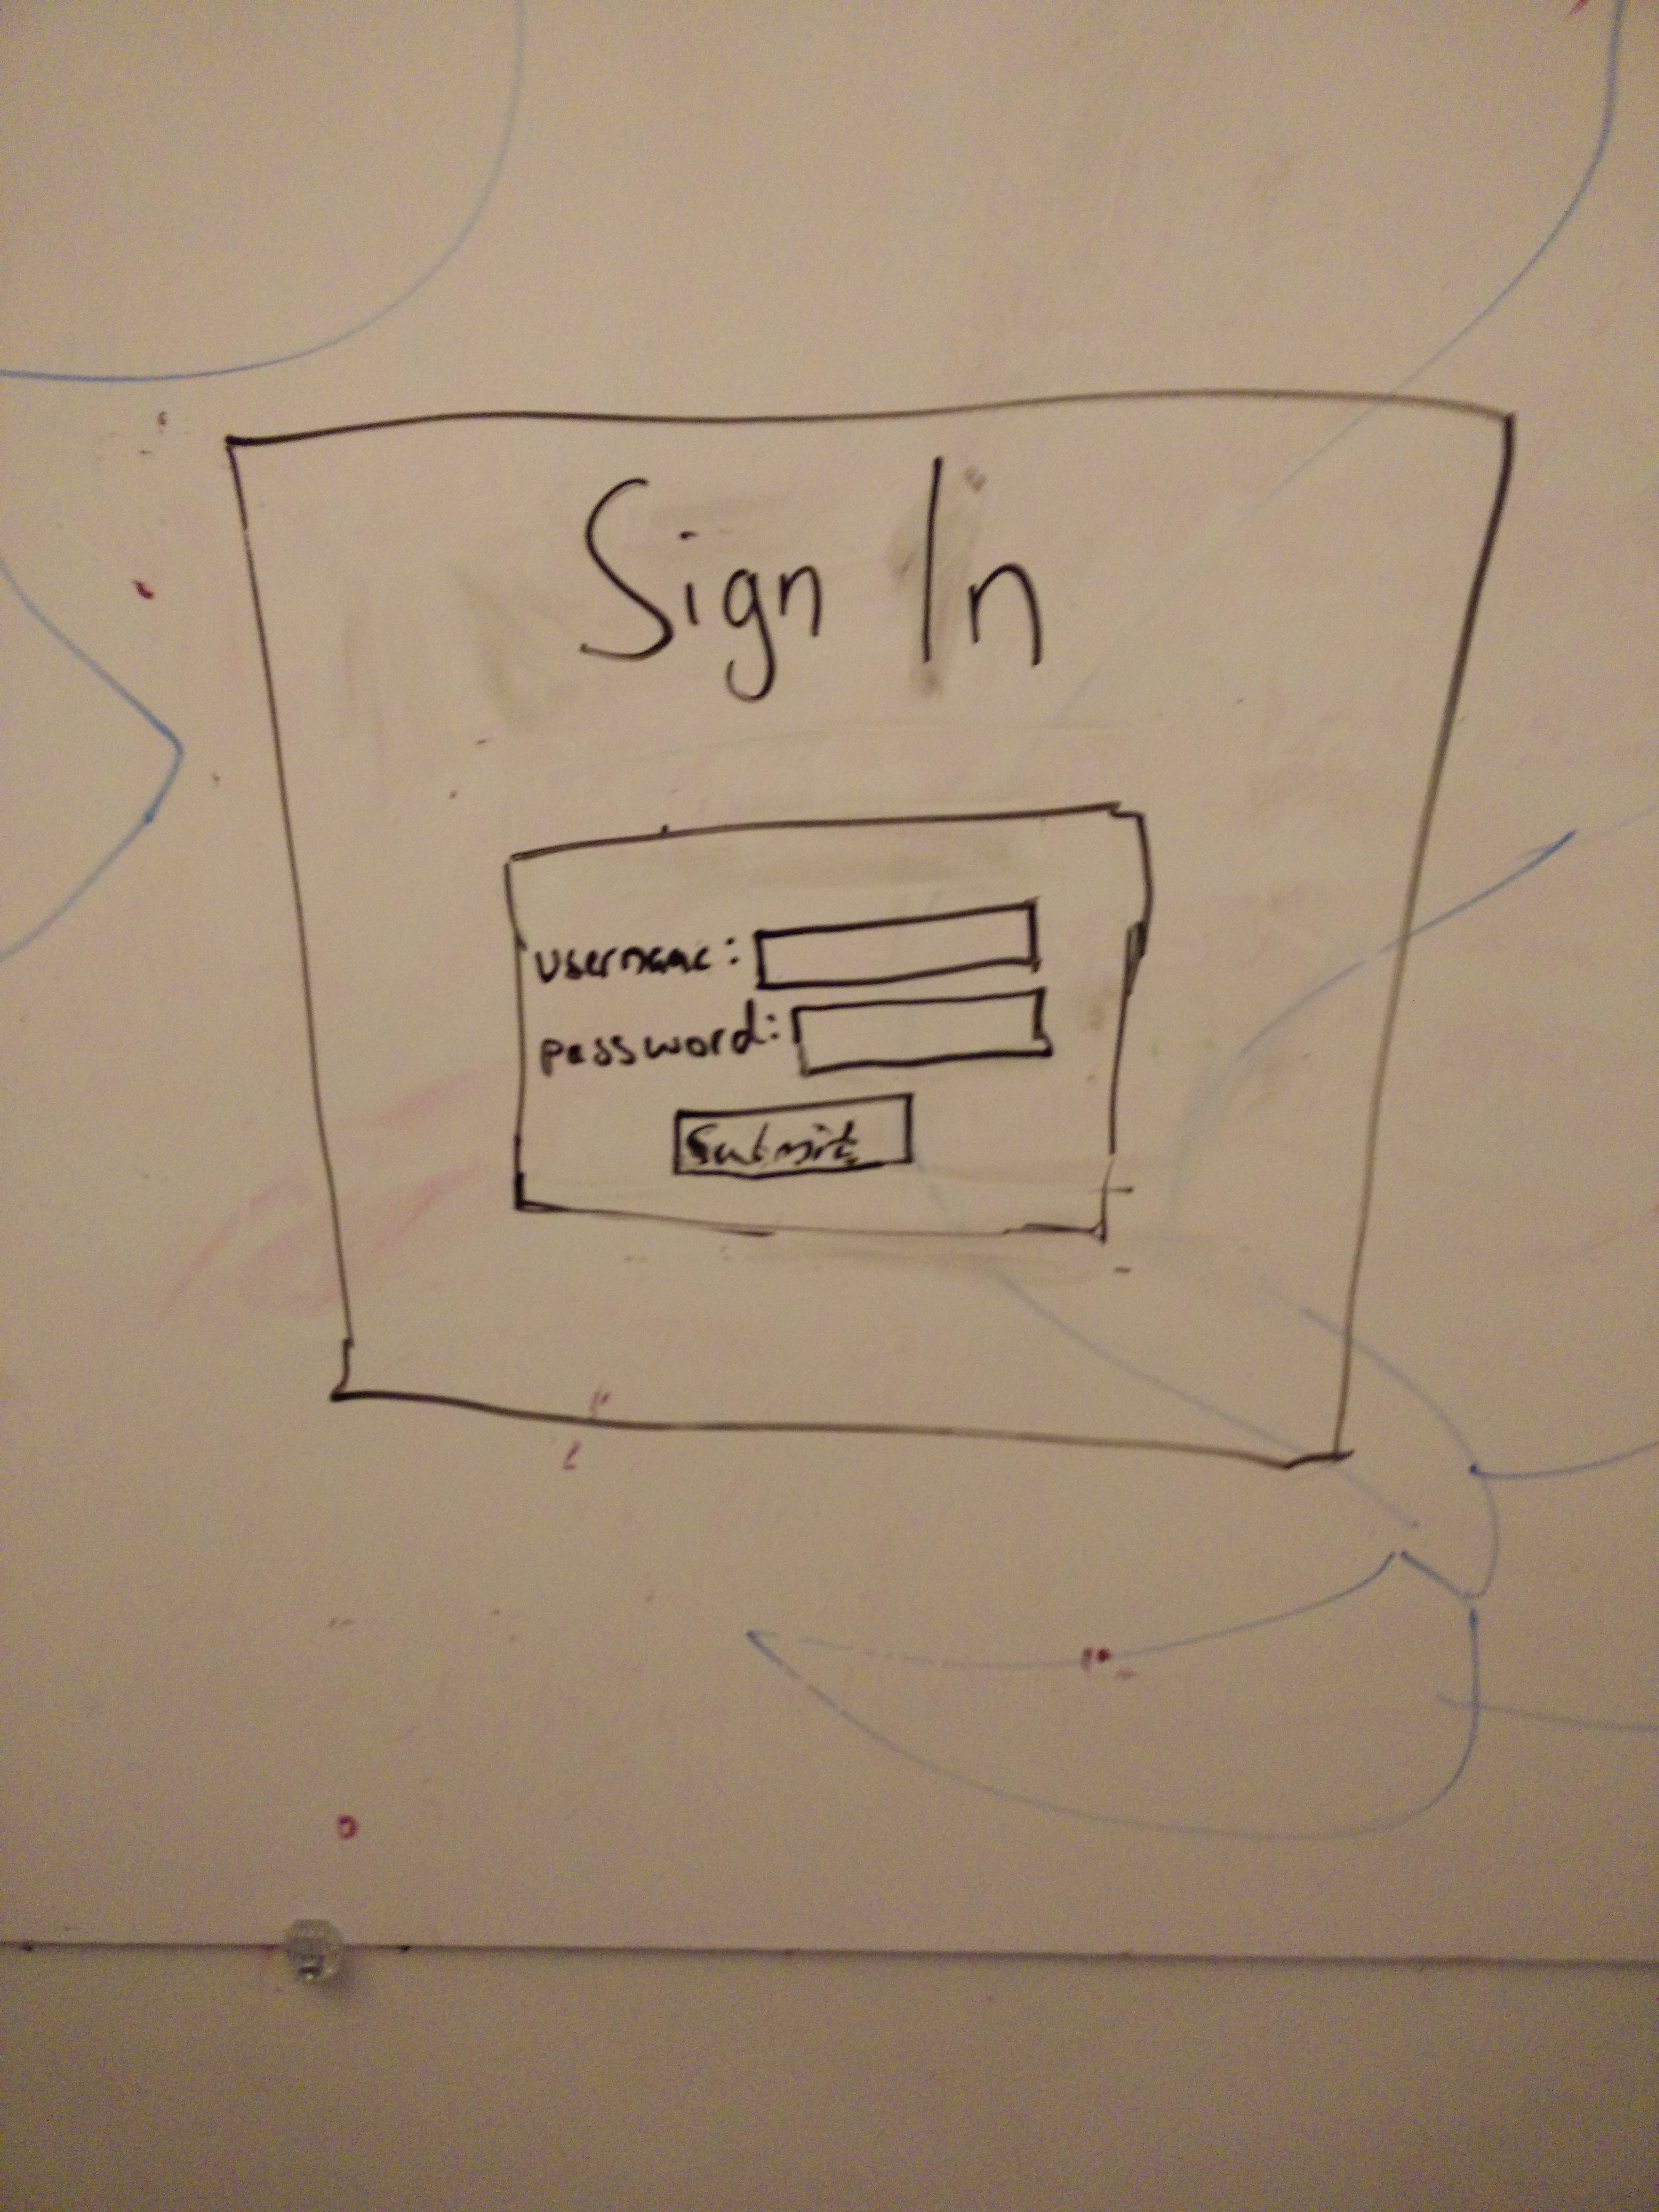 Sign In
username:
password:
Submit